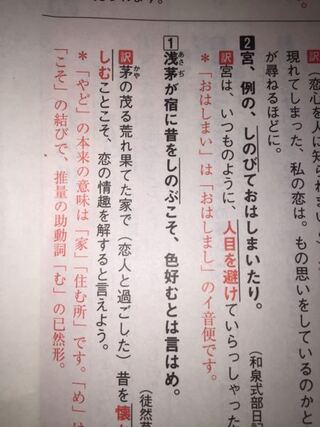 訳（恋心を人に知られ
現れてしまった、私の恋は。もの思いをしているのかと
が尋ねるほどに。
2 宮、例の、しのびておはしまいたり。（和泉式部日記
訳 宮は、いつものように、人目を避けていらっしゃった
＊「おはしまい」は「おはしまし」のイ音便です。
あさぢ
1 浅茅が宿に昔をしのぶこそ、色好むとは言はめ。（徒然草
訳 茅の茂る荒れ果てた家で（恋人と過ごした）昔を懐
しむことこそ、恋の情趣を解すると言えよう。
＊「やど」の本来の意味は「家」「住む所」です。「め」は
「こそ」の結びで、推量の助動詞「む」の已然形。